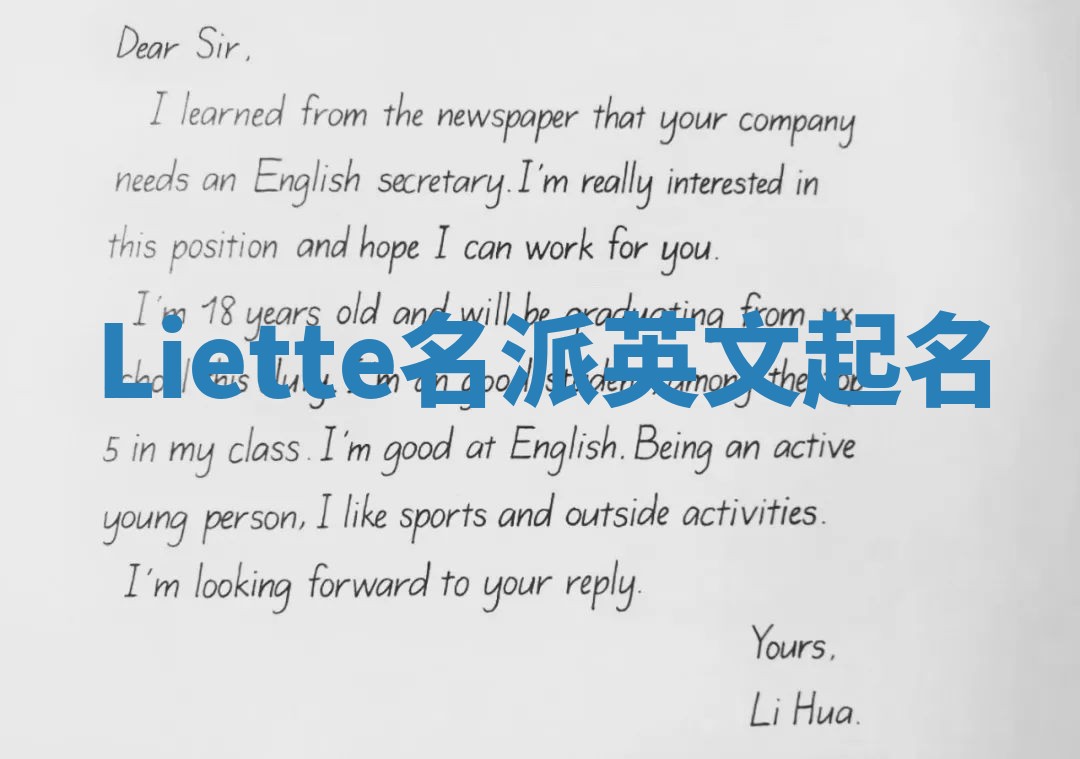 Dear Sir,
I learned from the newspaper that your company
needs an English secretary. I'm really interested in
this position and hope I can work for you.
I'm 18 years old and will be graduating from xx
Liette名派英文起名
this July. I'm an good student, among the top
5 in my class. I'm good at English. Being an active
young person, I like sports and outside activities.
I'm looking forward to your reply.
Yours,
Li Hua.